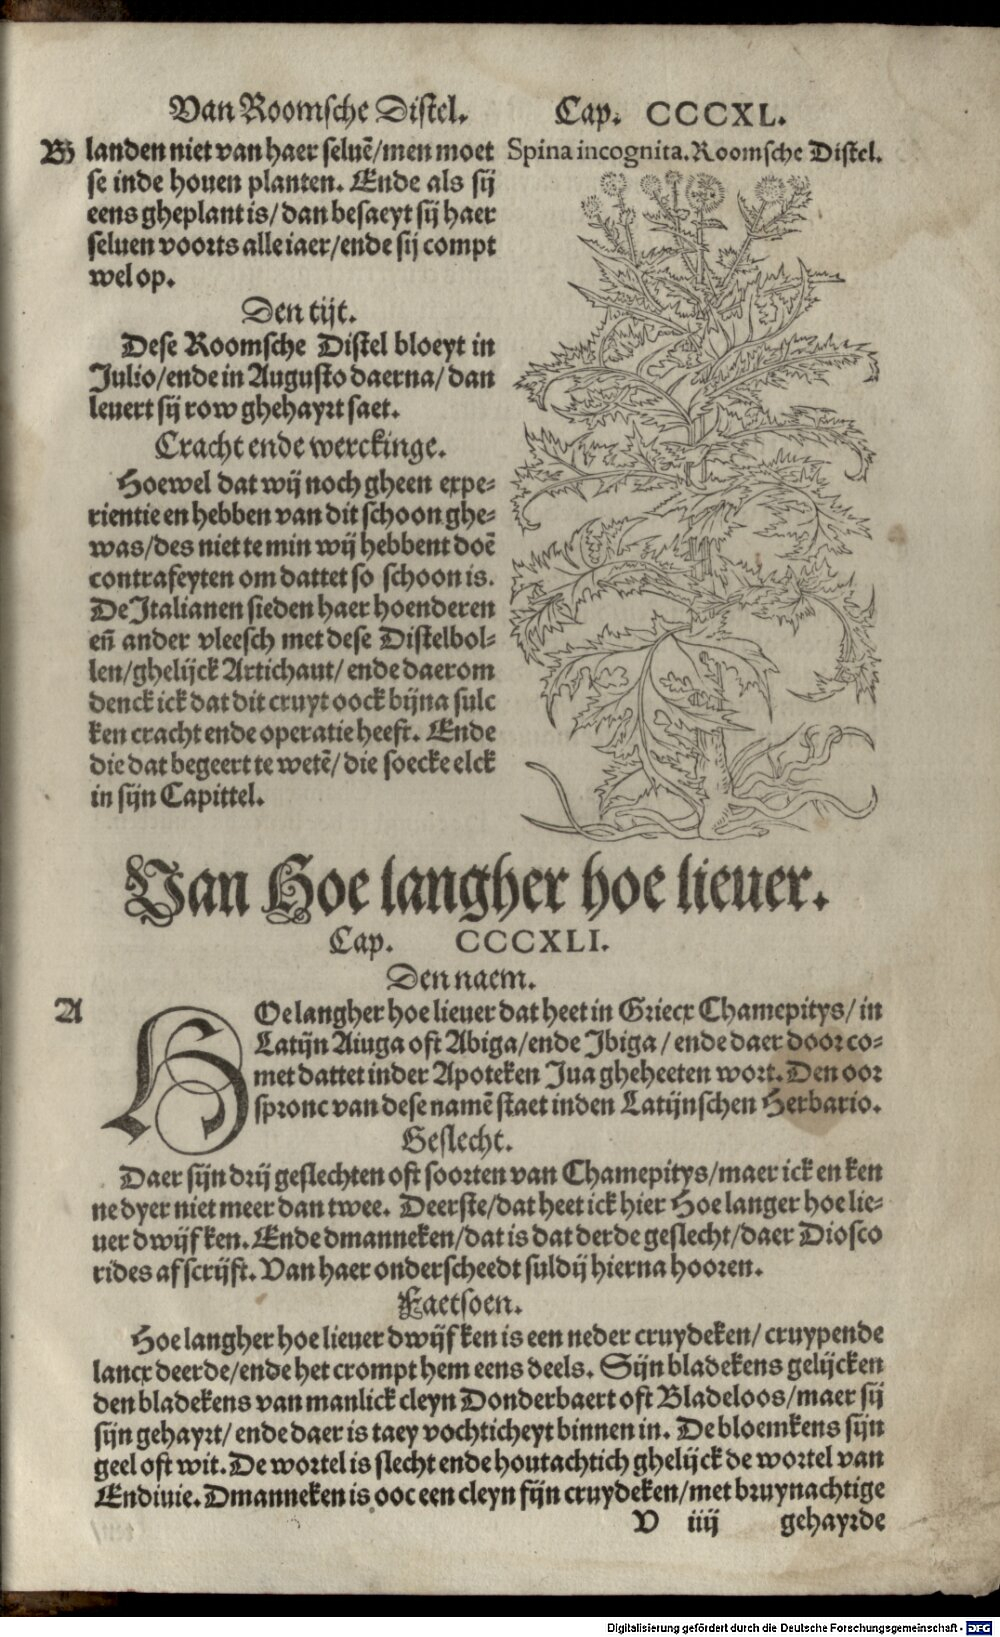 Van Roomsche Distel. Cap. CCCXL.
B landen niet van haer seluē/men moet
se inde houen planten. Ende als sij
eens gheplant is/dan besaeyt sij haer
seluen voorts alle iaer/ende sij compt
wel op.
Den tijt.
Dese Roomsche Distel bloeyt in
Julio/ende in Augusto daerna/dan
leuert sij row ghehayrt saet.
Cracht ende werckinge.
Hoewel dat wij noch gheen expe-
rientie en hebben van dit schoon ghe-
was/des niet te min wij hebbent doē
contrafeyten om dattet so schoon is.
De Italianen sieden haer hoenderen
en̄ ander vleesch met dese Distelbol-
len/ghelijck Artichaut/ende daerom
denck ick dat dit cruyt oock bijna sulc
ken cracht ende operatie heeft. Ende
die dat begeert te wetē/die soecke elck
in sijn Capittel.
Spina incognita. Roomsche Distel.
Van Hoe langher hoe lieuer.
Cap. CCCXLI.
Den naem.
A HOe langher hoe lieuer dat heet in Griecx Chamepitys/in
Latijn Aiuga oft Abiga/ende Ibiga/ende daer door co-
met dattet inder Apoteken Iua gheheeten wort. Den oor
spronc van dese namē staet inden Latijnschen Herbario.
Geslecht.
Daer sijn drij geslechten oft soorten van Chamepitys/maer ick en ken
ne dyer niet meer dan twee. Deerste/dat heet ick hier Hoe langer hoe lie-
uer dwijfken. Ende dmanneken/dat is dat derde geslecht/daer Diosco
rides af scrijft. Van haer onderscheedt suldij hierna hooren.
Faetsoen.
Hoe langher hoe lieuer dwijfken is een neder cruydeken/cruypende
lancx deerde/ende het crompt hem eens deels. Sijn bladekens gelijcken
den bladekens van manlick cleyn Donderbaert oft Bladeloos/maer sij
sijn gehayrt/ende daer is taey vochticheyt binnen in. De bloemkens sijn
geel oft wit. De wortel is slecht ende houtachtich ghelijck de wortel van
Endiuie. Dmanneken is ooc een cleyn fijn cruydeken/met bruynachtige
V iiij gehayrde
Digitalisierung gefördert durch die Deutsche Forschungsgemeinschaft - DFG